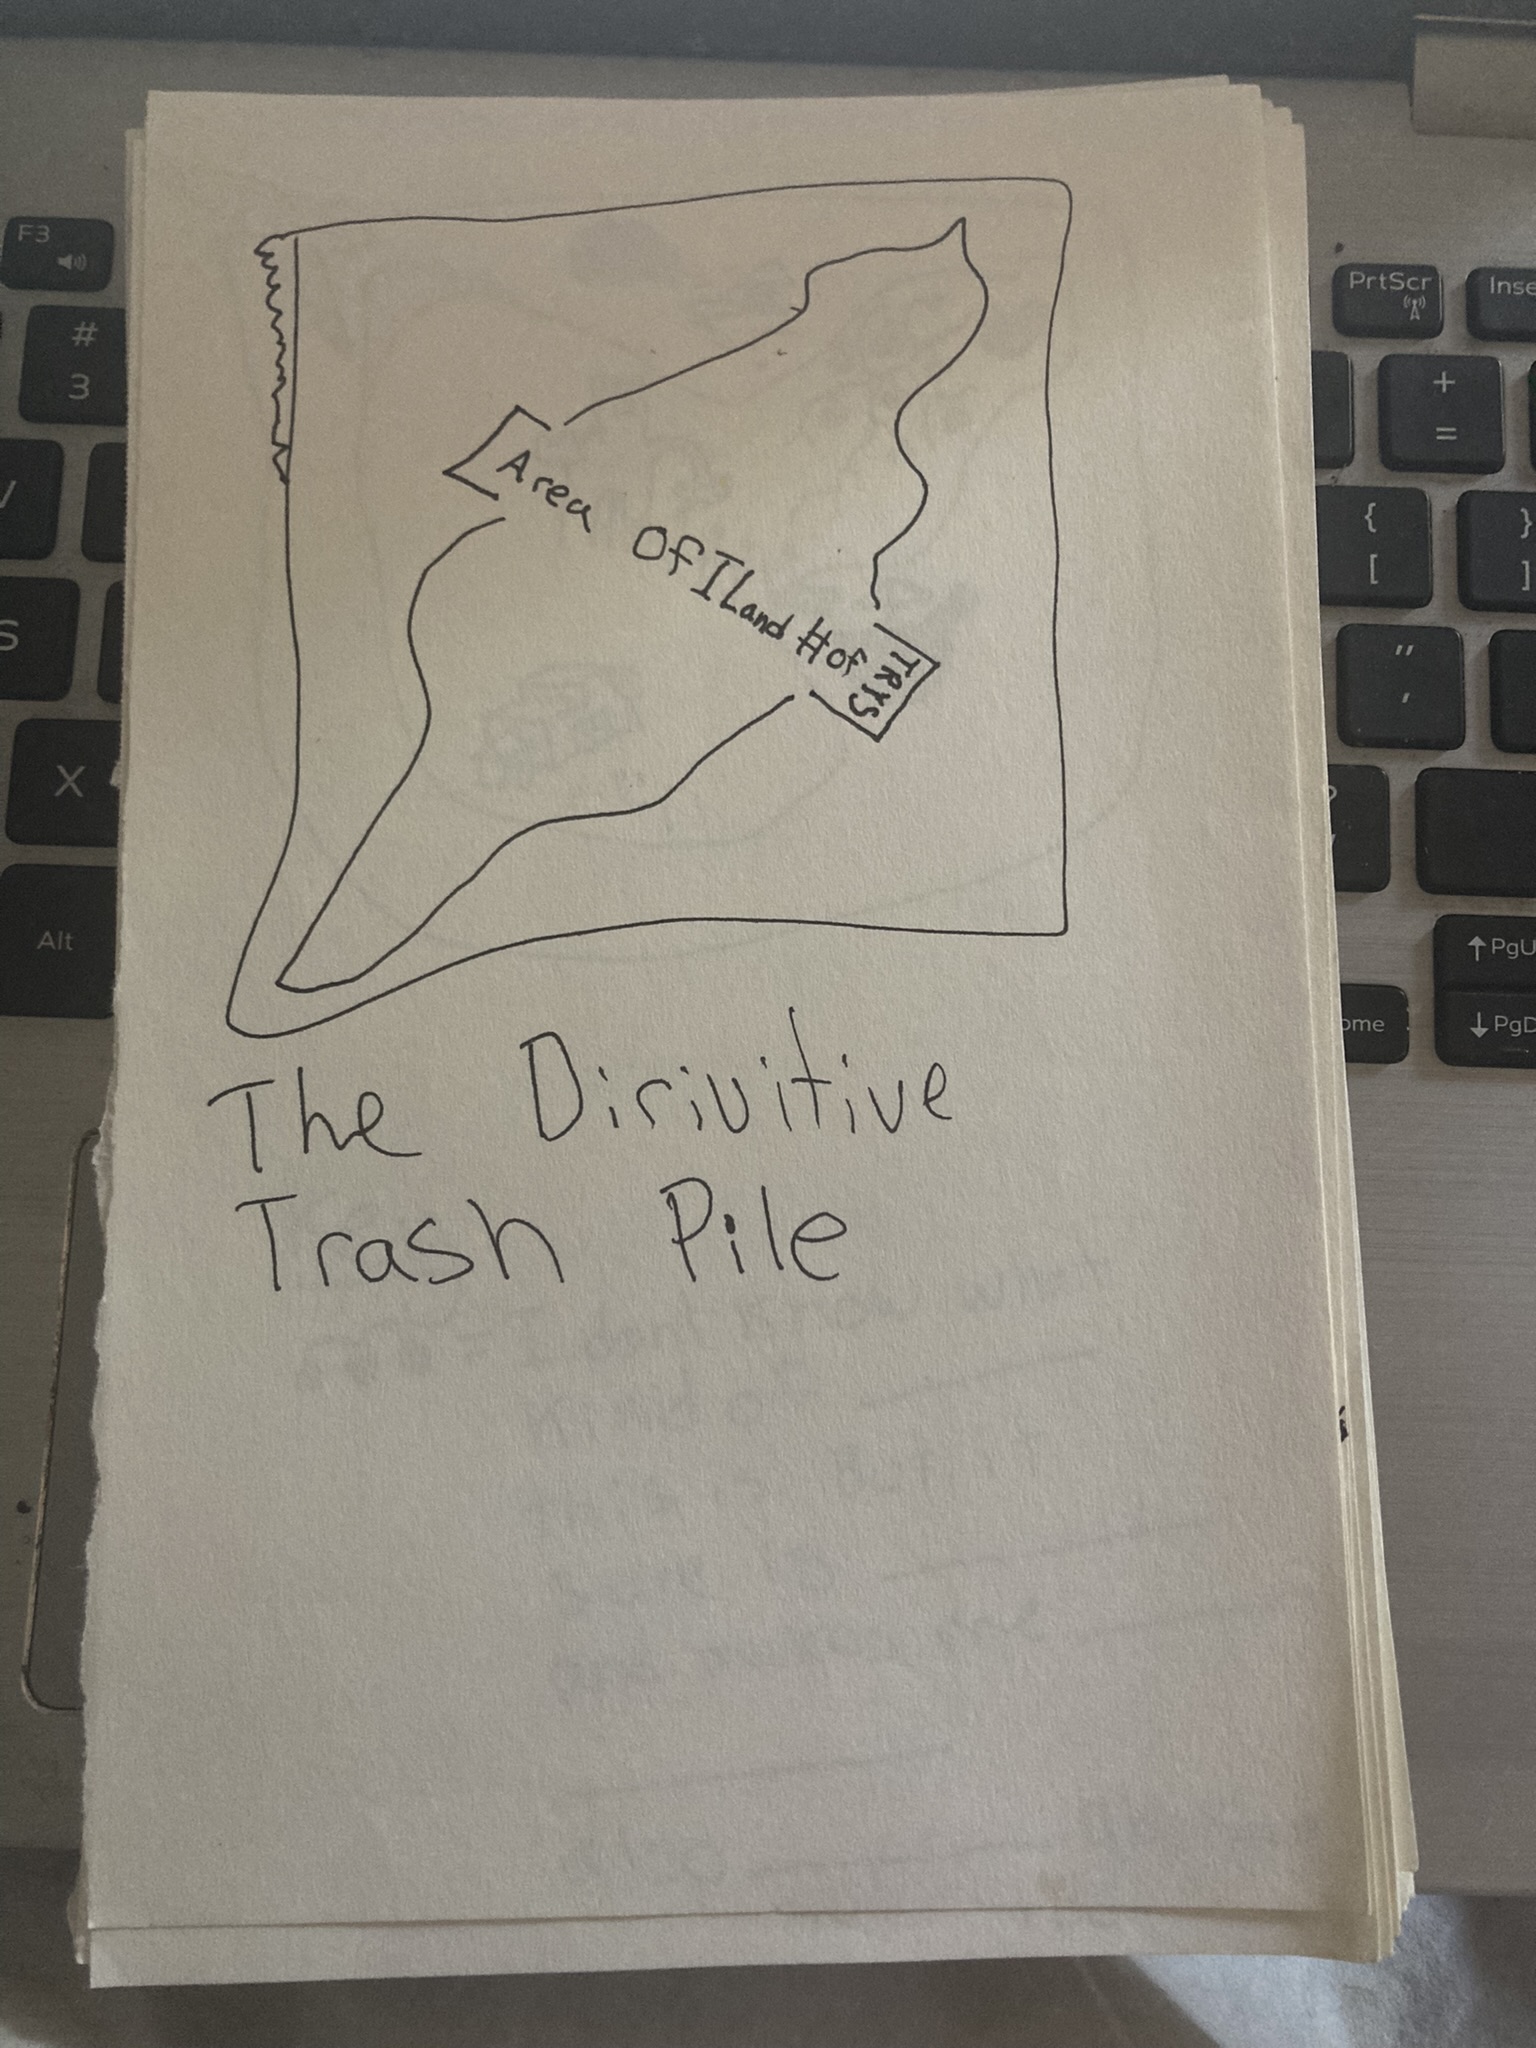 Area Of ILand # of TRYS
The Dirivitive
Trash Pile
F3
#
3
S
X
Alt
PrtScr
Inse
+
=
{
[
}
]
"
'
PgU
ome
PgD